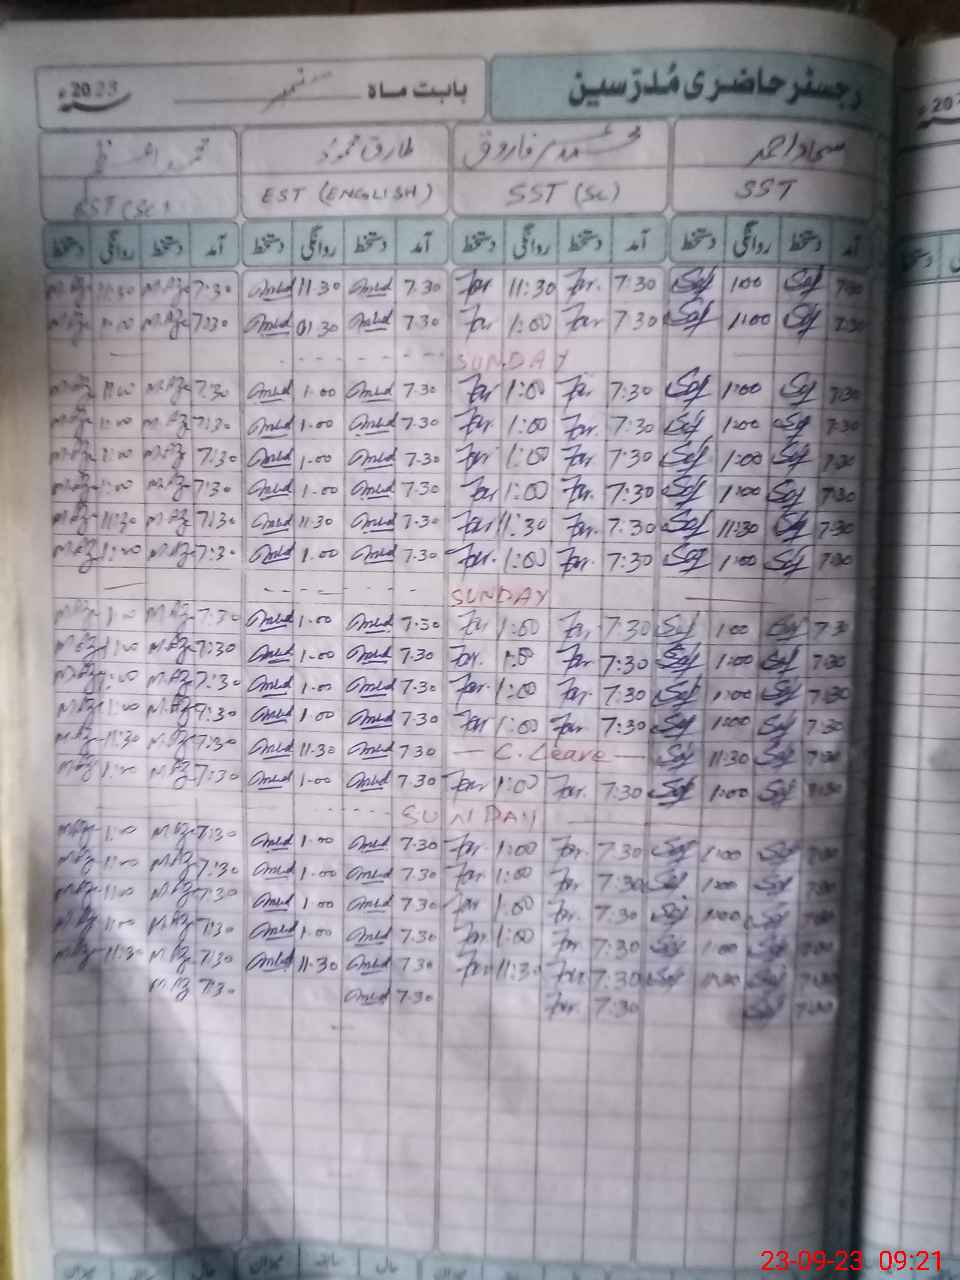 رجسٹر حاضری مُدرّسین
بابت ماہ ستمبر 2023ء
سجاد احمد محمد عمر فاروق طارق محمود
SST SST (Sc) EST (ENGLISH) EST (Sc)
آمد دستخط روانگی دستخط آمد دستخط روانگی دستخط آمد دستخط روانگی دستخط آمد دستخط روانگی دستخط
M.Az 11:30 M.Az 7:30 11.30 7.30 Far 11:30 Far. 7:30 Saj 1:00 Saj 7:30
M.Az 1:00 M.Az 7:30 01.30 7.30 Far 1:00 Far 7:30 Saj 1:00 Saj 7:30
SUNDAY
M.Az 1:00 M.Az 7:30 1.00 7.30 Far 1:00 Far 7:30 Saj 1:00 Saj 7:30
M.Az 1:00 M.Az 7:30 1.00 7.30 Far 1:00 Far. 7:30 Saj 1:00 Saj 7:30
M.Az 1:00 M.Az 7:30 1.00 7.30 Far 1:00 Far. 7:30 Saj 1:00 Saj 7:30
M.Az 1:00 M.Az 7:30 1.00 7.30 Far 1:00 Far. 7:30 Saj 1:00 Saj 7:30
M.Az 11:30 M.Az 7:30 11.30 7.30 Far 11:30 Far. 7:30 Saj 11:30 Saj 7:30
M.Az 1:00 M.Az 7:30 1.00 7.30 Far. 1:00 Far. 7:30 Saj 1:00 Saj 7:30
SUNDAY
M.Az 1:00 M.Az 7:30 1.00 7.30 Far 1:00 Far 7:30 Saj 1:00 Saj 7:30
M.Az 1:00 M.Az 7:30 1.00 7.30 Far. 1:00 Far 7:30 Saj 1:00 Saj 7:30
M.Az 1:00 M.Az 7:30 1.00 7.30 Far. 1:00 Far. 7:30 Saj 1:00 Saj 7:30
M.Az 1:00 M.Az 7:30 1.00 7.30 Far 1:00 Far 7:30 Saj 1:00 Saj 7:30
M.Az 11:30 M.Az 7:30 11.30 7.30 C. Leave Saj 11:30 Saj 7:30
M.Az 1:00 M.Az 7:30 1.00 7.30 Far 1:00 Far. 7:30 Saj 1:00 Saj 7:30
SUNDAY
M.Az 1:00 M.Az 7:30 1.00 7.30 Far. 1:00 Far. 7:30 Saj 1:00 Saj 7:30
M.Az 1:00 M.Az 7:30 1.00 7.30 Far. 1:00 Far 7:30 Saj 1:00 Saj 7:30
M.Az 1:00 M.Az 7:30 1.00 7.30 Far 1:00 Far. 7:30 Saj 1:00 Saj 7:30
M.Az 1:00 M.Az 7:30 1.00 7.30 Far 1:00 Far 7:30 Saj 1:00 Saj 7:30
M.Az 11:30 M.Az 7:30 11.30 7.30 Far 11:30 Far 7:30 Saj 11:30 Saj 7:30
M.Az 7:30 7.30 Far. 7:30 Saj 7:30
میزان سابقہ حال میزان
23-09-23 09:21